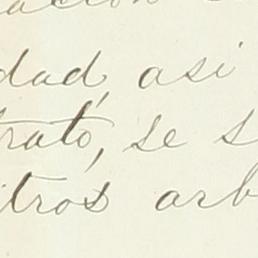 dad, asi
trato, se s
itros arb